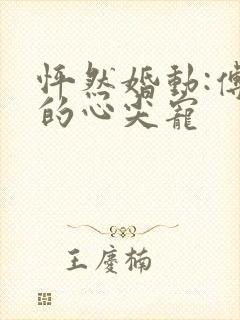 怦然婚動:傅
的心尖寵
王慶楠